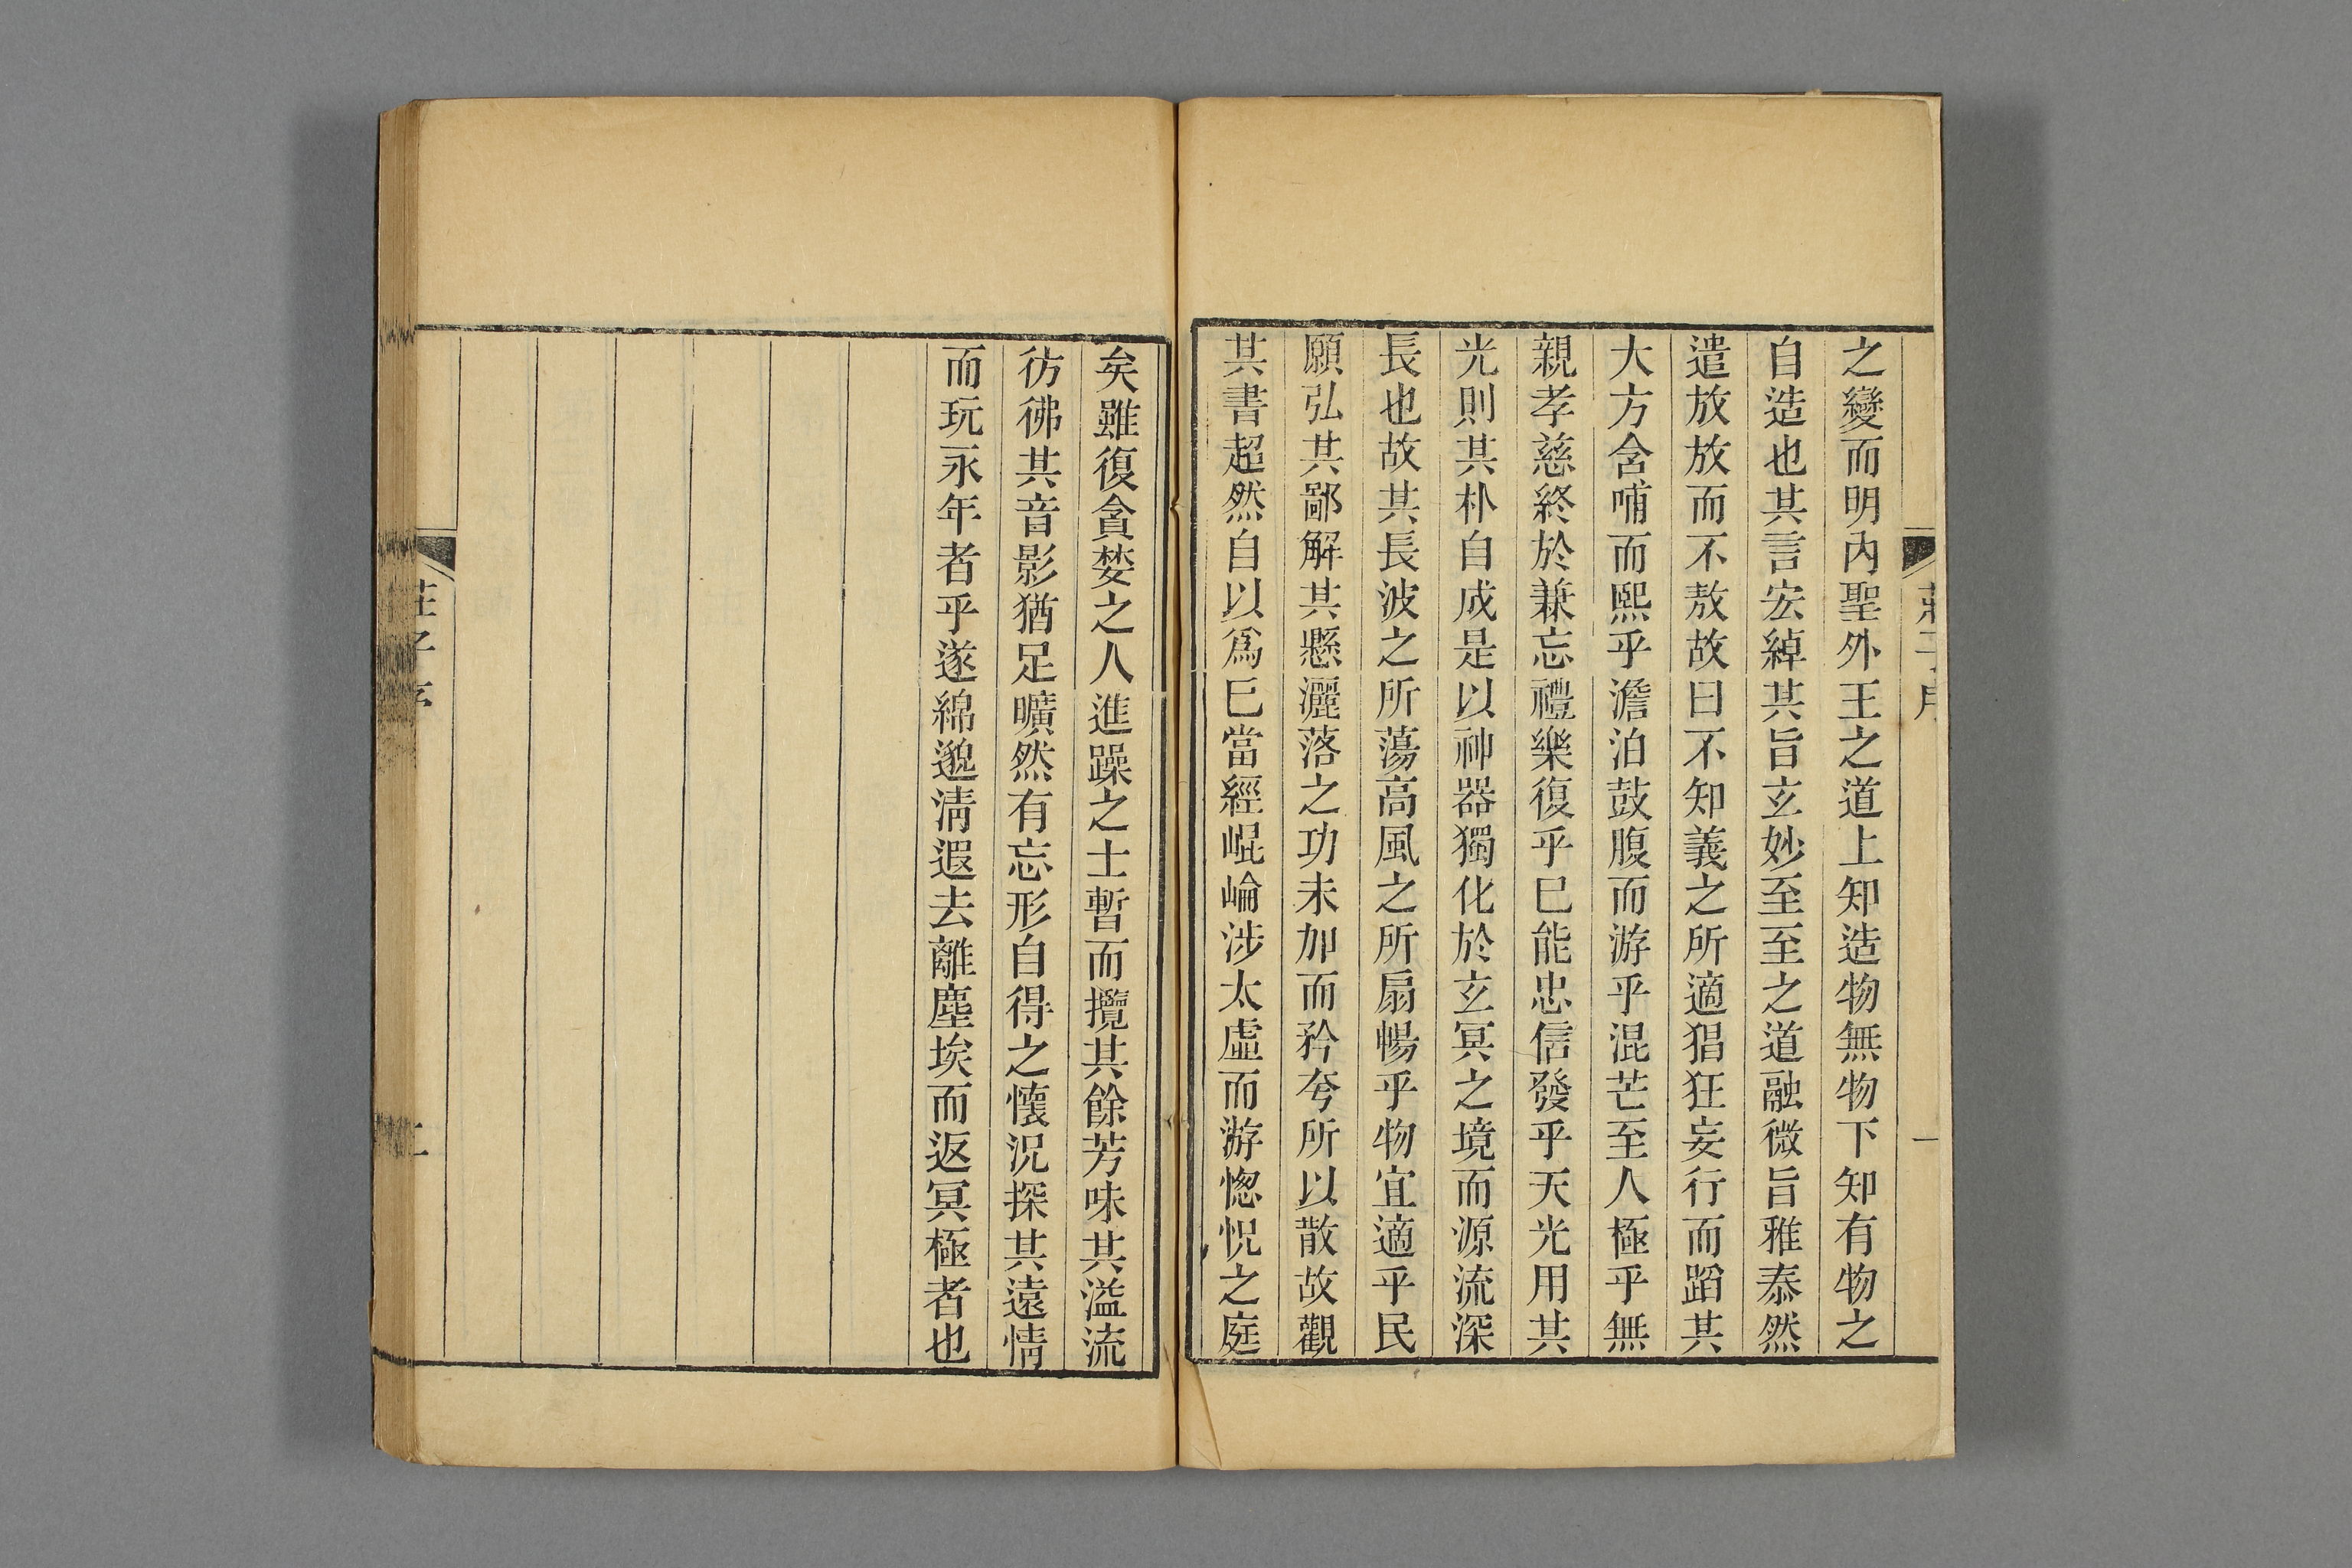 莊子序
一
之變而明內聖外王之道上知造物無物下知有物之
自造也其言宏綽其旨玄妙至至之道融微旨雅泰然
遣放放而不敖故曰不知義之所適猖狂妄行而蹈其
大方含哺而熙乎澹泊鼓腹而游乎混芒至人極乎無
親孝慈終於兼忘禮樂復乎巳能忠信發乎天光用其
光則其朴自成是以神器獨化於玄冥之境而源流深
長也故其長波之所蕩高風之所扇暢乎物宜適乎民
願弘其鄙解其懸灑落之功未加而矜夸所以散故觀
其書超然自以爲巳當經崐崘涉太虛而游惚怳之庭
矣雖復貪婪之人進躁之士暫而攬其餘芳味其溢流
彷彿其音影猶足曠然有忘形自得之懷況探其遠情
而玩永年者乎遂綿邈淸遐去離塵埃而返冥極者也
莊子序
二